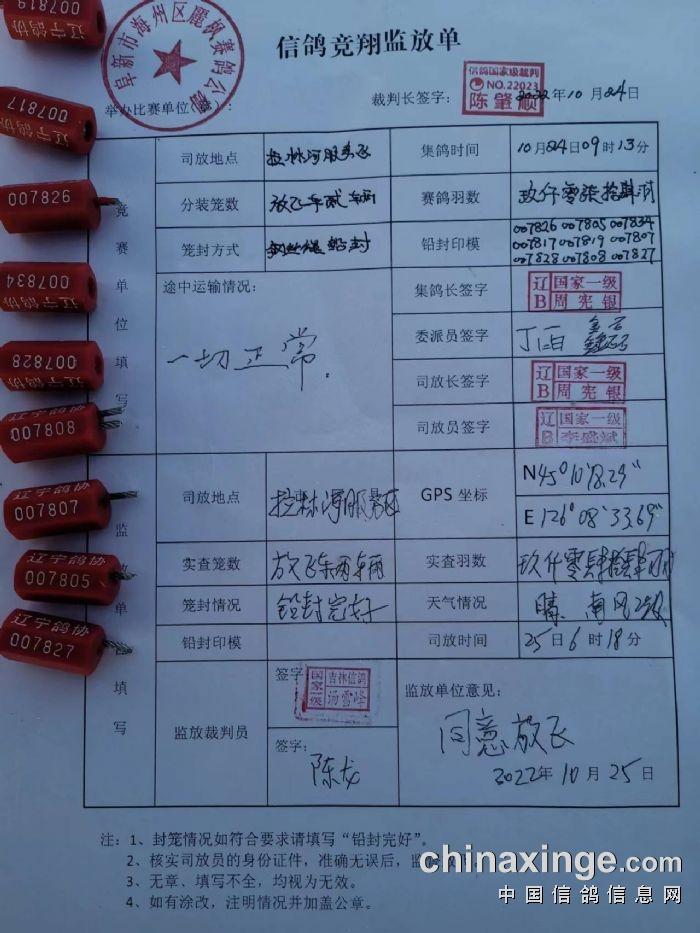 信鸽竞翔监放单
阜新市海州区麗枫赛鸽公棚
举办比赛单位(章):
裁判长签字:
信鸽国家级裁判
NO.22023
陈肇顺
2022年10月24日
竞赛单位填写
司放地点 拉林河服务区 集鸽时间 10月24日09时13分
分装笼数 放飞车贰辆 赛鸽羽数 玖仟零柒拾肆羽
笼封方式 钢丝绳铅封 铅封印模 007826 007805 007834
007817 007819 007807
007828 007808 007827
途中运输情况: 一切正常.
集鸽长签字 辽B 国家一级 周宪银
委派员签字
司放长签字 辽B 国家一级 周宪银
司放员签字 辽B 国家一级 李盛斌
司放地点 拉林河服务区 GPS 坐标 N45°10'18.29"
E 126°08'33.69"
实查笼数 放飞车两辆 实查羽数
笼封情况 铅封完好 天气情况 晴 南风2级
铅封印模 司放时间 25日6时18分
监放裁判员 签字: 国家一级 吉林信鸽 汤雪峰
签字: 陈龙
监放单位意见:
同意放飞
2022年10月25日
注:1、封笼情况如符合要求请填写“铅封完好”。
2、核实司放员的身份证件,准确无误后,监
3、无章、填写不全,均视为无效。
4、如有涂改,注明情况并加盖公章。
辽宁鸽协
007819
辽宁鸽协
007817
007826
辽宁鸽协
007834
辽宁鸽协
007828
辽宁鸽协
007808
辽宁鸽协
007807
辽宁鸽协
007805
辽宁鸽协
007827
chinaxinge.com
中国信鸽信息网